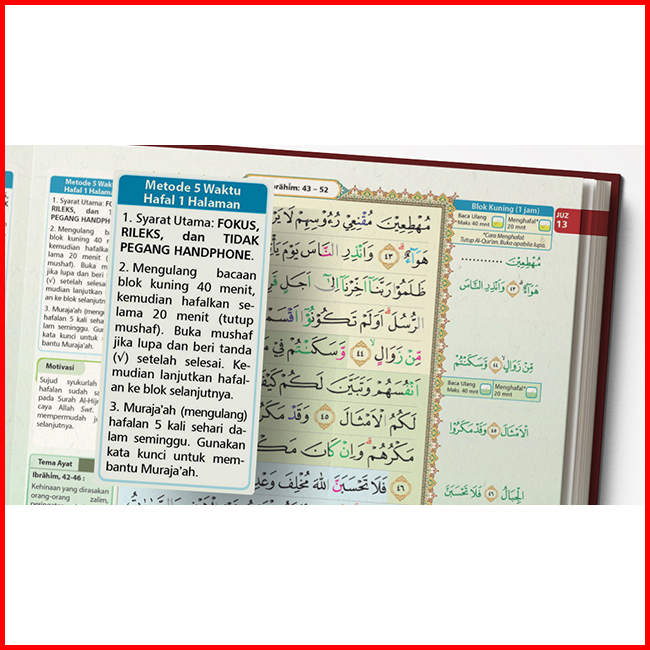 Metode 5 Waktu
Hafal 1 Halaman
1. Syarat Utama: FOKUS,
RILEKS, dan TIDAK
PEGANG HANDPHONE.
2. Mengulang bacaan
blok kuning 40 menit,
kemudian hafalkan se-
lama 20 menit (tutup
mushaf). Buka mushaf
jika lupa dan beri tanda
(√) setelah selesai. Ke-
mudian lanjutkan hafal-
an ke blok selanjutnya.
3. Muraja'ah (mengulang)
hafalan 5 kali sehari da-
lam seminggu. Gunakan
kata kunci untuk mem-
bantu Muraja'ah.
Metode 5 Wak
Hafal 1 Halama
1. Syarat Utama:
RILEKS, dan
PEGANG HANDPH
2. Mengulang
blok kuning 40 m
kemudian hafal
lama 20 menit
mushaf). Buka
jika lupa dan beri
(√) setelah seles
mudian lanjutkan
an ke blok selanjutn
3. Muraja'ah (meng
hafalan 5 kali seha
lam seminggu. Gu
kata kunci untuk
bantu Muraja'ah.
Motivasi
Sujud syukurlah
hafalan sudah sa
pada Surah Al-Hij
caya Allah Swt.
mempermudah j
selanjutnya.
Tema Ayat
Ibrāhīm, 42-46 :
Kehinaan yang dirasakan
orang-orang zalim,
brāhīm: 43 – 52
مُهْطِعِيْنَ مُقْنِعِيْ رُءُوْسِهِمْ لَا
هَوَاۤءٌ ٤٣ وَاَنْذِرِ النَّاسَ يَوْمَ
ظَلَمُوْا رَبَّنَآ اَخِّرْنَآ اِلٰٓى اَجَلٍ
الرُّسُلَۗ اَوَلَمْ تَكُوْنُوْٓا
مِّنْ زَوَالٍۙ ٤٤ وَّسَكَنْتُمْ فِيْ
اَنْفُسَهُمْ وَتَبَيَّنَ لَكُمْ كَيْفَ
لَكُمُ الْاَمْثَالَ ٤٥ وَقَدْ
مَكْرُهُمْۗ وَاِنْ كَانَ
٤٦ فَلَا تَحْسَبَنَّ اللّٰهَ مُخْلِفَ
Blok Kuning (1 jam)
Baca Ulang
Maks. 40 mnt
Menghafal*
20 mnt
*Cara Menghafal:
Tutup Al-Qur'an. Buka apabila lupa.
JUZ
13
مُهْطِعِيْنَ ............
هَوَاۤءٌ ٤٣ وَاَنْذِرِ النَّاسَ
مِّنْ زَوَالٍۙ ٤٤ وَّسَكَنْتُمْ
Baca Ulang
Maks. 40 mnt
Menghafal*
20 mnt
الْاَمْثَالَ ٤٥ وَقَدْ مَكَرُوْا
الْجِبَالُ ٤٦ فَلَا تَحْسَبَنَّ